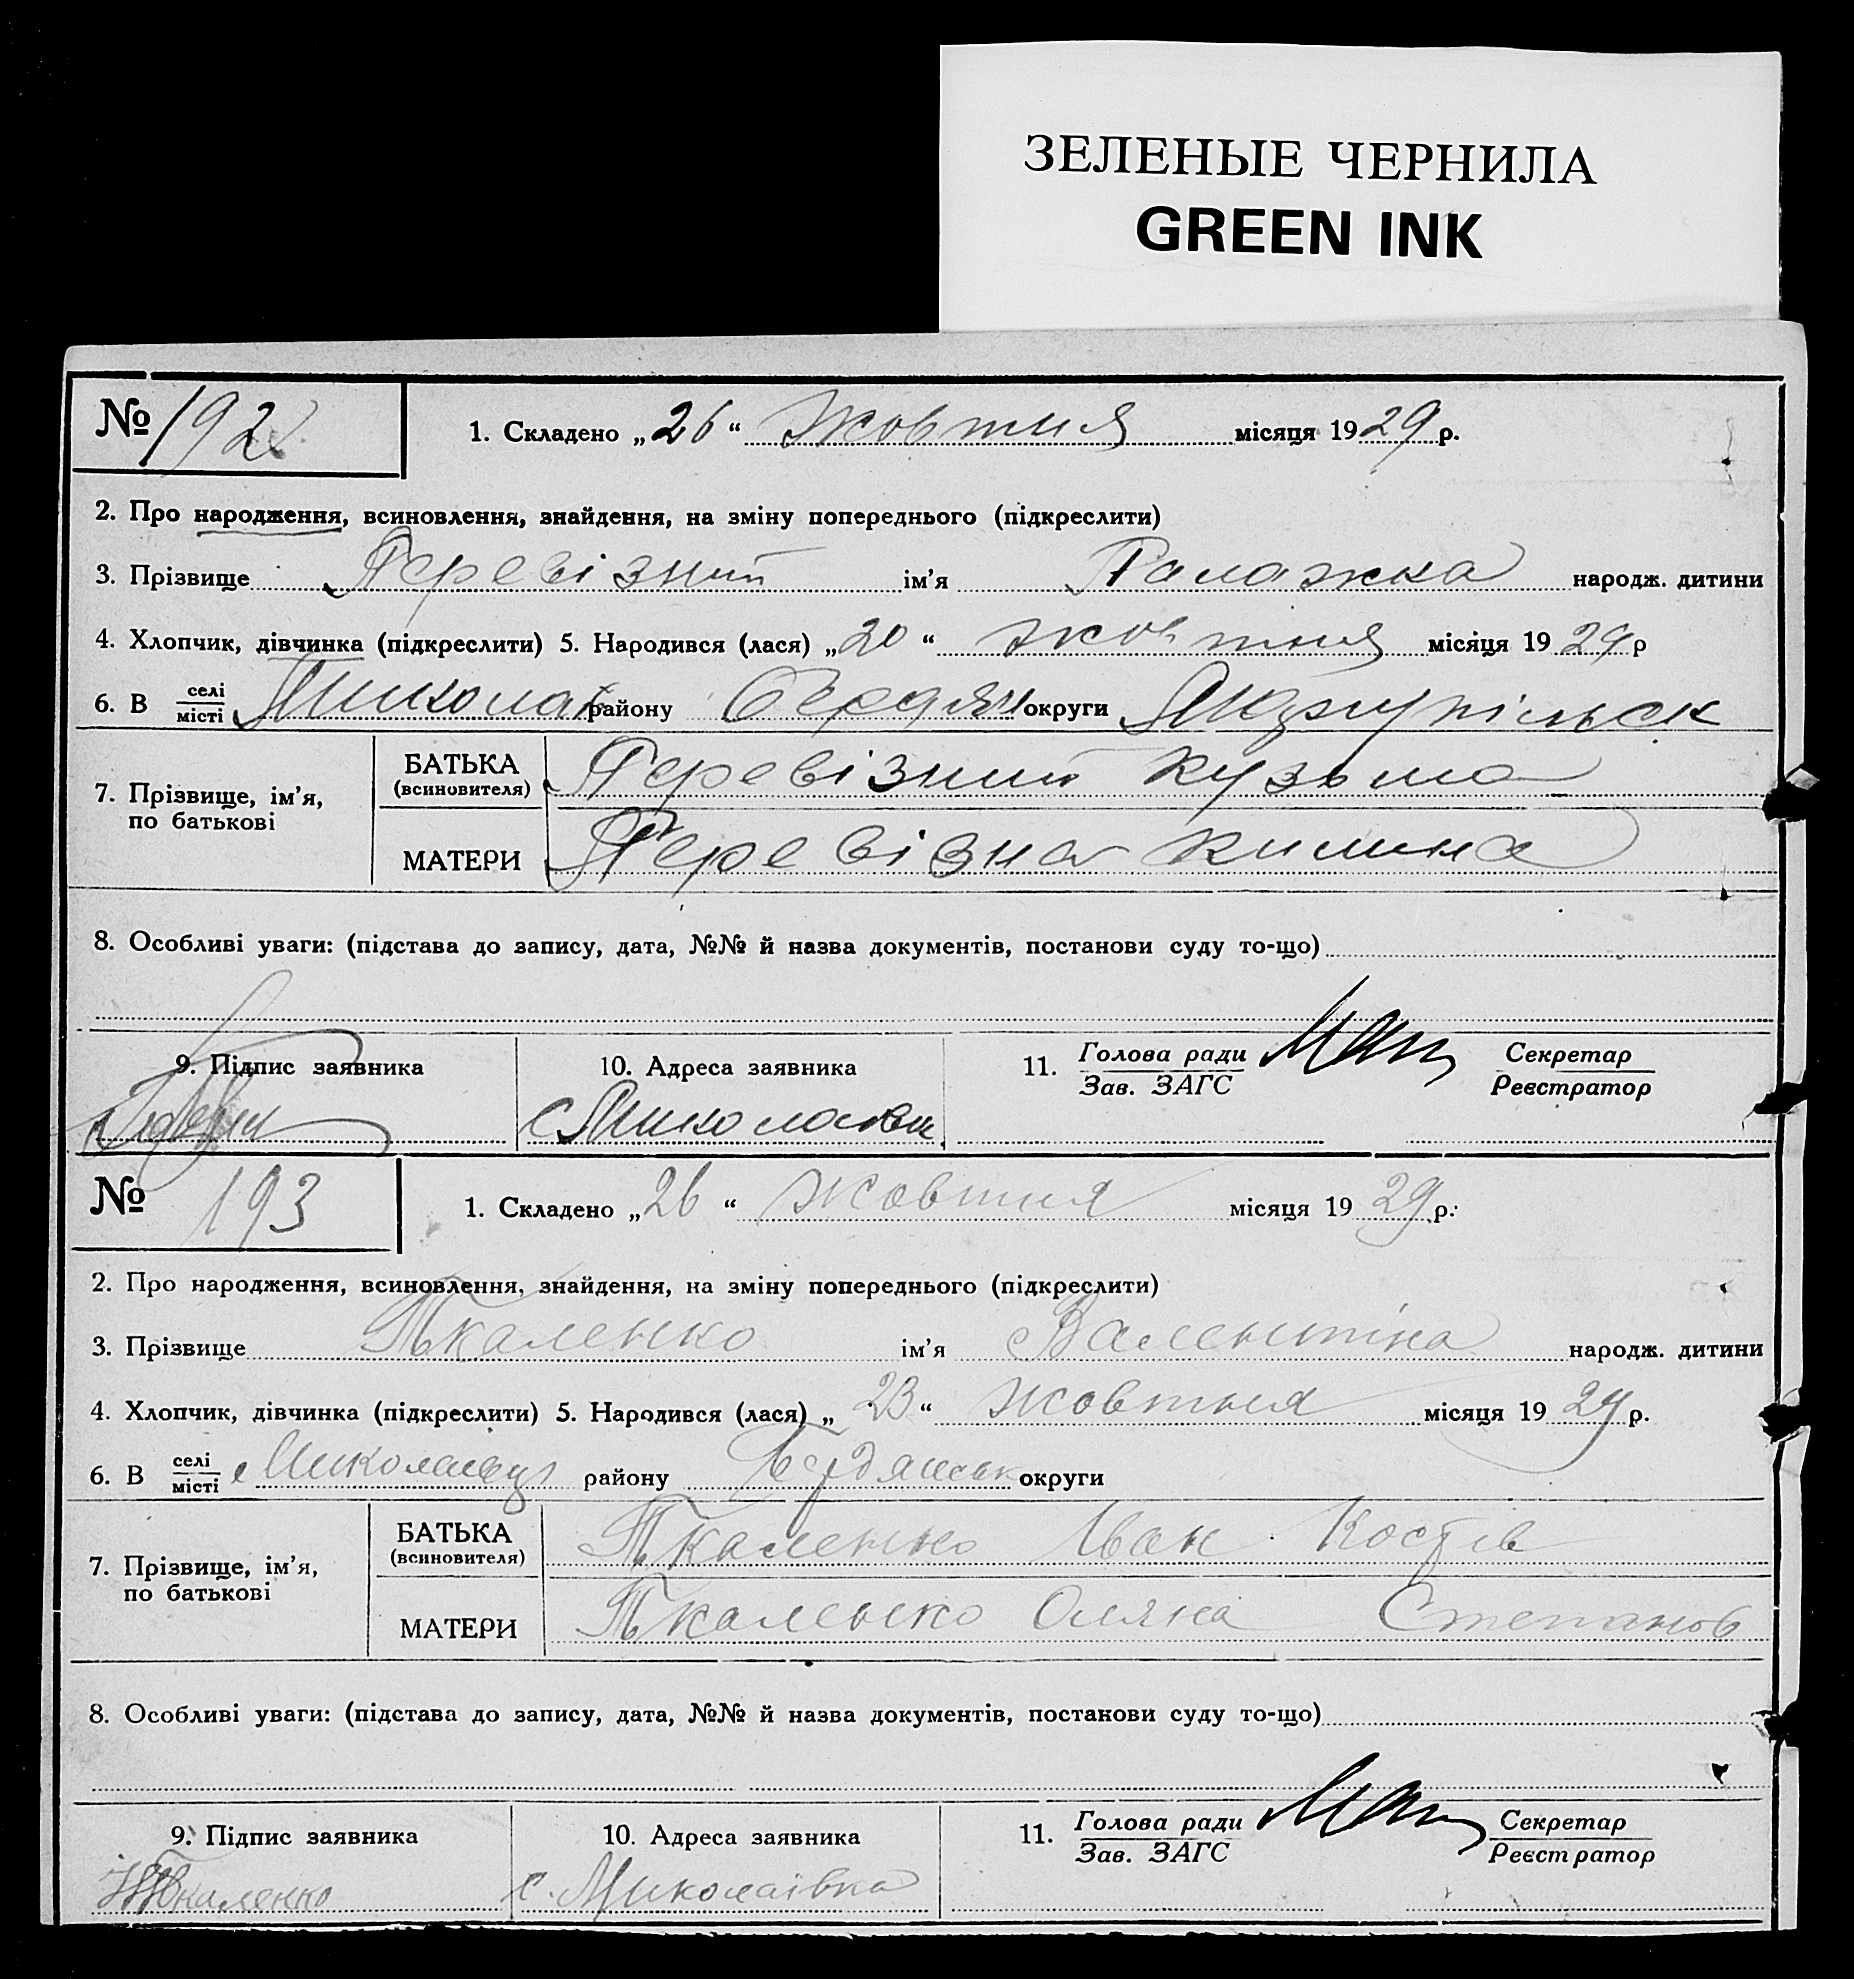 ЗЕЛЕНЫЕ ЧЕРНИЛА
GREEN INK
№ 192 1. Складено „26“ жовтня місяця 1929 р.
2. Про народження, всиновлення, знайдення, на зміну попереднього (підкреслити)
3. Прізвище Перевізний ім’я Палажка народж. дитини
4. Хлопчик, дівчинка (підкреслити) 5. Народився (лася) „20“ жовтня місяця 1929 р
6. В селі місті Миколаї району Бердян округи
7. Прізвище, ім’я, по батькові
БАТЬКА (всиновителя) Перевізний Кузьма
МАТЕРИ Перевізна Килина
8. Особливі уваги: (підстава до запису, дата, №№ й назва документів, постанови суду то-що)
9. Підпис заявника 10. Адреса заявника 11. Голова ради Зав. ЗАГС Секретар Реєстратор
с Миколаївк
№ 193 1. Складено „26“ жовтня місяця 1929 р.
2. Про народження, всиновлення, знайдення, на зміну попереднього (підкреслити)
3. Прізвище Ткаленко ім’я Валентіна народж. дитини
4. Хлопчик, дівчинка (підкреслити) 5. Народився (лася) „23“ жовтня місяця 1929 р.
6. В селі місті Миколаївці району Бердянськ округи
7. Прізвище, ім’я, по батькові
БАТЬКА (всиновителя) Ткаленко Іван Костів
МАТЕРИ Ткаленко Оляна Степанов
8. Особливі уваги: (підстава до запису, дата, №№ й назва документів, постанови суду то-що)
9. Підпис заявника 10. Адреса заявника 11. Голова ради Зав. ЗАГС Секретар Реєстратор
Ткаленко с. Миколаївка